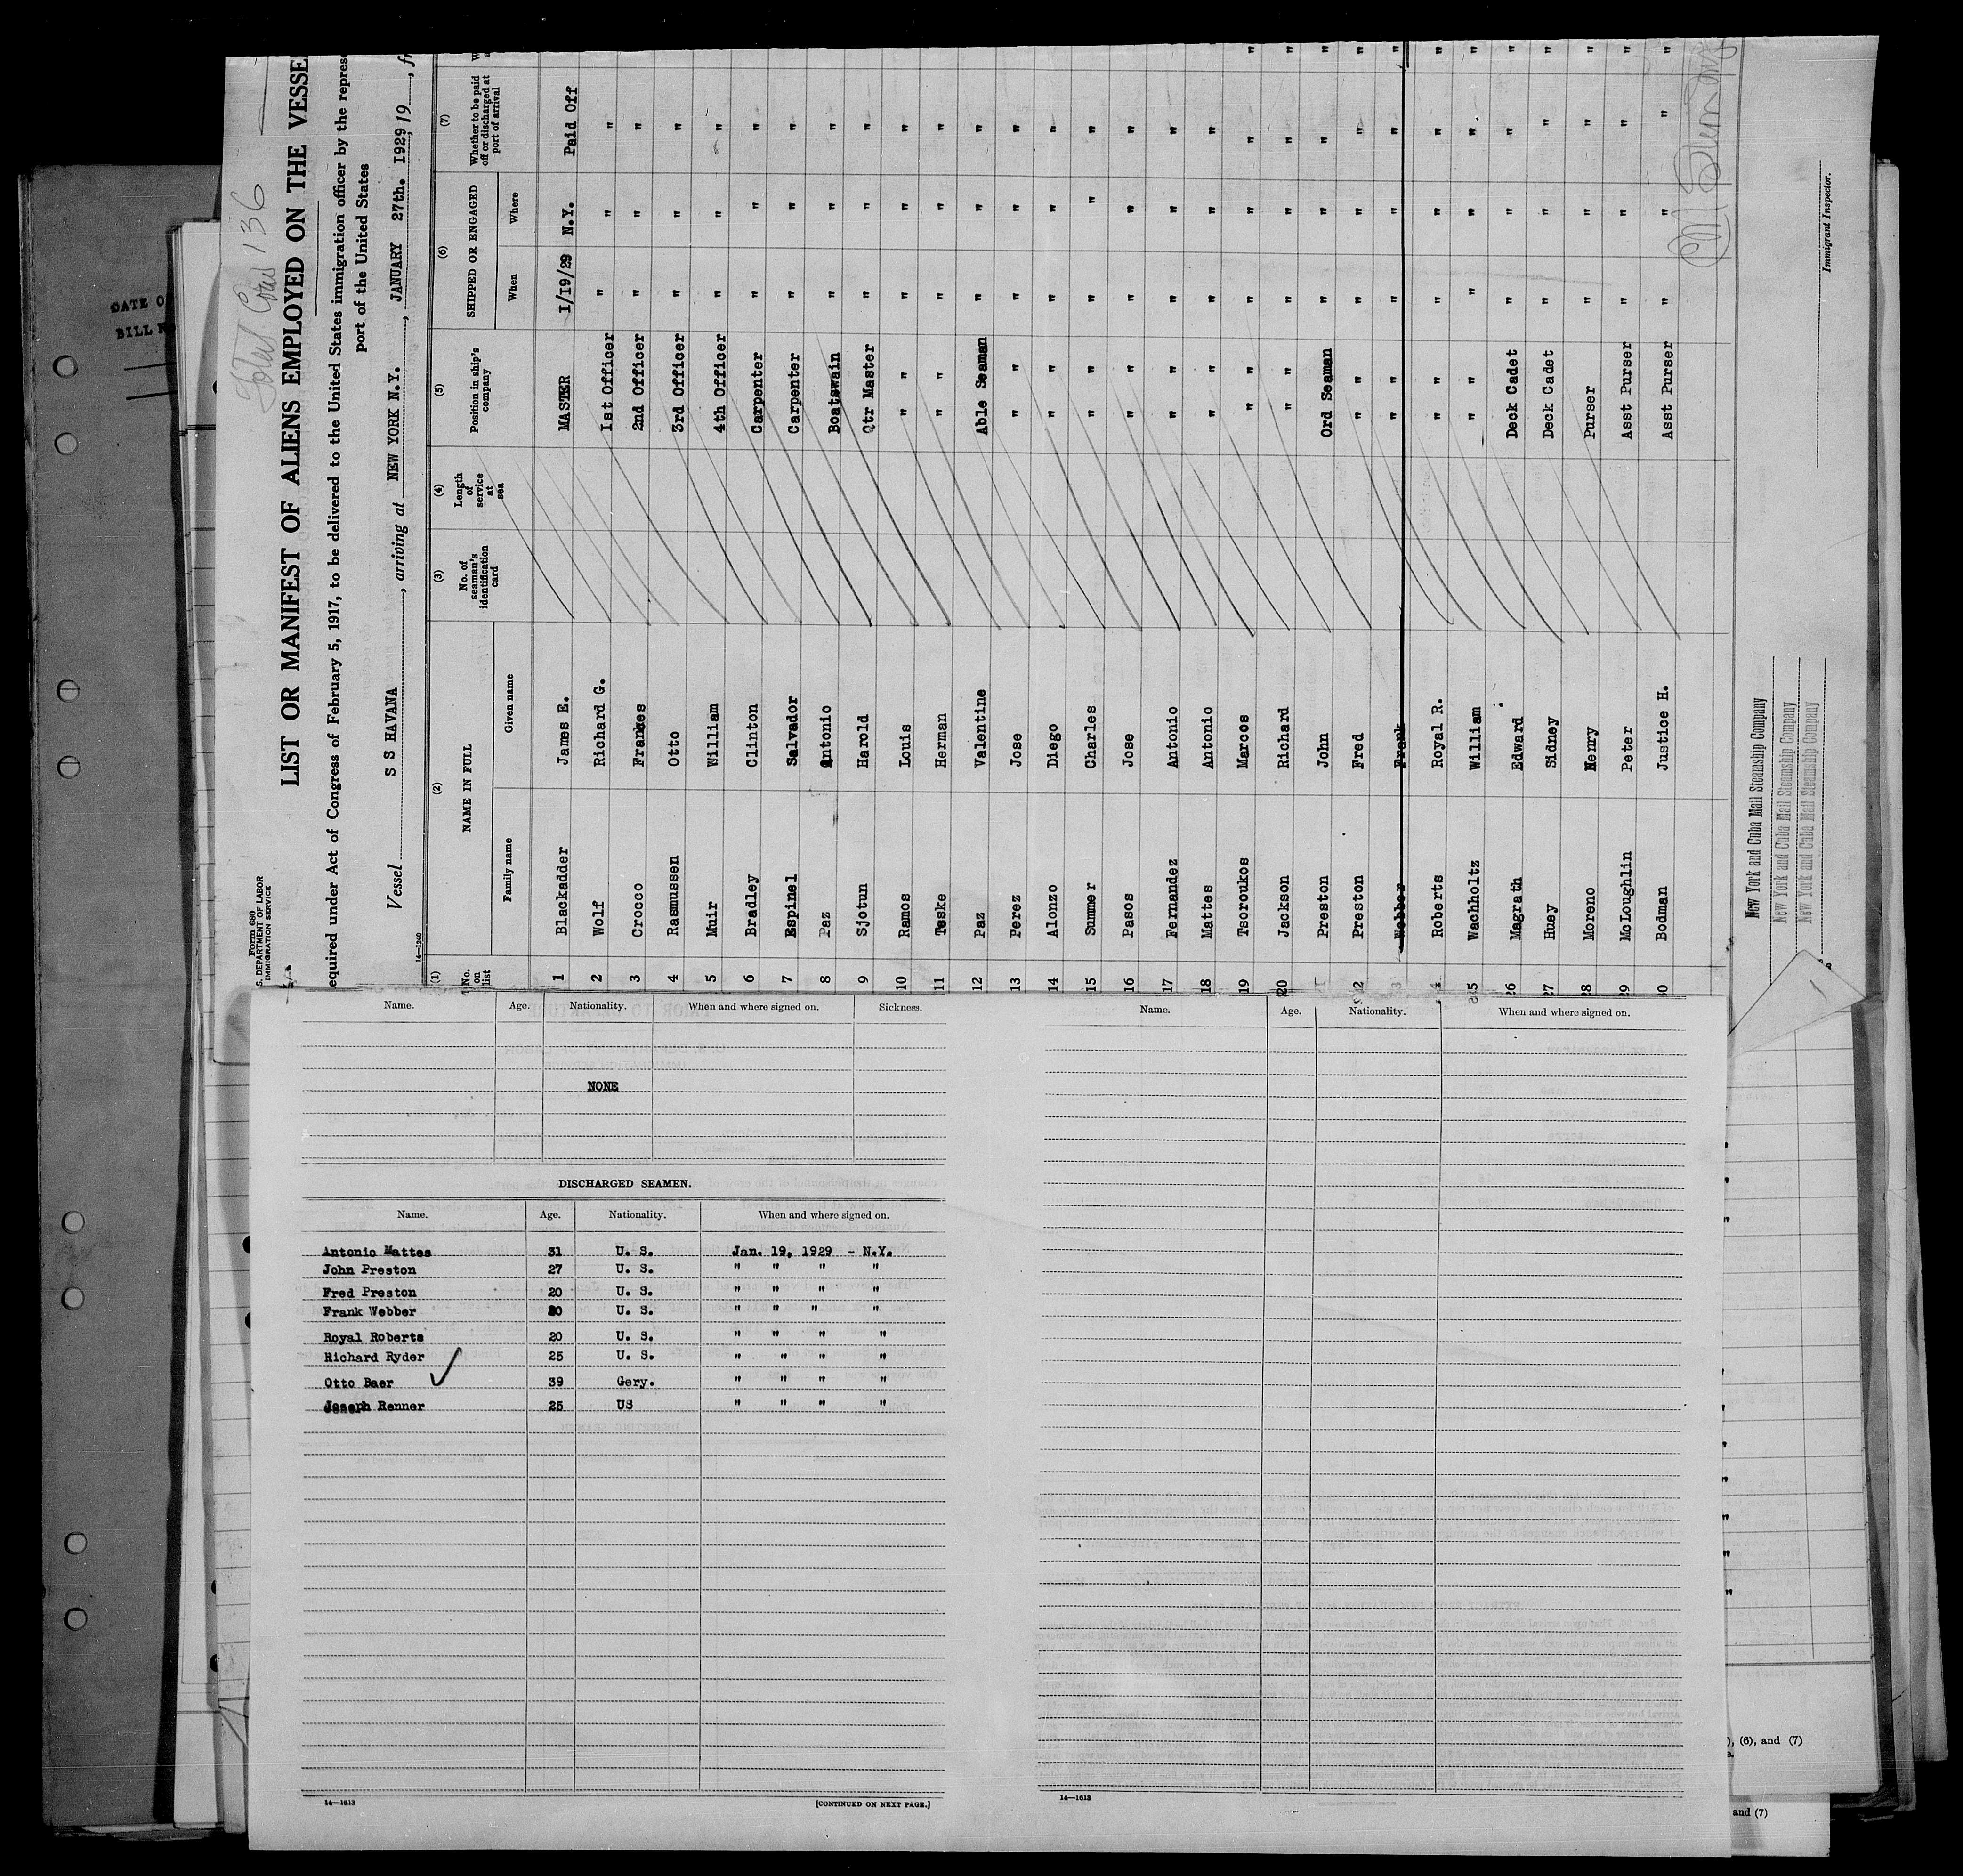 DATE O
BILL N
Total Crew 136
Form 680
S. DEPARTMENT OF LABOR
IMMIGRATION SERVICE
LIST OR MANIFEST OF ALIENS EMPLOYED ON THE VESSE
equired under Act of Congress of February 5, 1917, to be delivered to the United States immigration officer by the repres
port of the United States
Vessel S S HAVANA, arriving at NEW YORK N.Y., JANUARY 27th. 1929, 19, fr
14-1240
(1) (2) (3) (4) (5) (6) (7)
No. on list NAME IN FULL No. of seaman's identification card Length of service at sea Position in ship's company SHIPPED OR ENGAGED Whether to be paid off or discharged at port of arrival
Family name Given name When Where
1 Blackadder James E. MASTER 1/19/29 N.Y. Paid Off
2 Wolf Richard G. 1st Officer " " "
3 Crocco Frankes 2nd Officer " " "
4 Rasmussen Otto 3rd Officer " " "
5 Muir William 4th Officer " " "
6 Bradley Clinton Carpenter " " "
7 Espinel Salvador Carpenter " " "
8 Paz Antonio Boatswain " " "
9 Sjotun Harold Qtr Master " " "
10 Ramos Louis " " " " "
11 Teske Herman " " " " "
12 Paz Valentine Able Seaman " " "
13 Perez Jose " " " " "
14 Alonzo Diego " " " " "
15 Sumner Charles " " " " "
16 Pasos Jose " " " " "
17 Fernandez Antonio " " " " "
18 Mattes Antonio " " " " "
19 Tsoroukos Marcos " " " " " "
20 Jackson Richard " " " " " "
Preston John Ord Seaman " " " "
22 Preston Fred " " " " " "
3 Webber Frank " " " " " "
4 Roberts Royal R. " " " " " "
25 Wachholtz William " " " " " "
26 Magrath Edward Deck Cadet " " " "
27 Huey Sidney Deck Cadet " " " "
28 Moreno Henry Purser " " " "
29 McLoughlin Peter Asst Purser " " " "
30 Bodman Justice H. Asst Purser " " " "
New York and Cuba Mail Steamship Company
New York and Cuba Mail Steamship Company
New York and Cuba Mail Steamship Company
Immigrant Inspector.
Name. Age. Nationality. When and where signed on. Sickness.
NONE
DISCHARGED SEAMEN.
Name. Age. Nationality. When and where signed on.
Antonio Mattes 31 U. S. Jan. 19, 1929 - N.Y.
John Preston 27 U. S. " " " "
Fred Preston 20 U. S. " " " "
Frank Webber 20 U. S. " " " "
Royal Roberts 20 U. S. " " " "
Richard Ryder 25 U. S. " " " "
Otto Baer 39 Gery. " " " "
Joseph Renner 25 US " " " "
14—1613 [CONTINUED ON NEXT PAGE.]
Name. Age. Nationality. When and where signed on.
14—1613
), (6), and (7)
and (7)